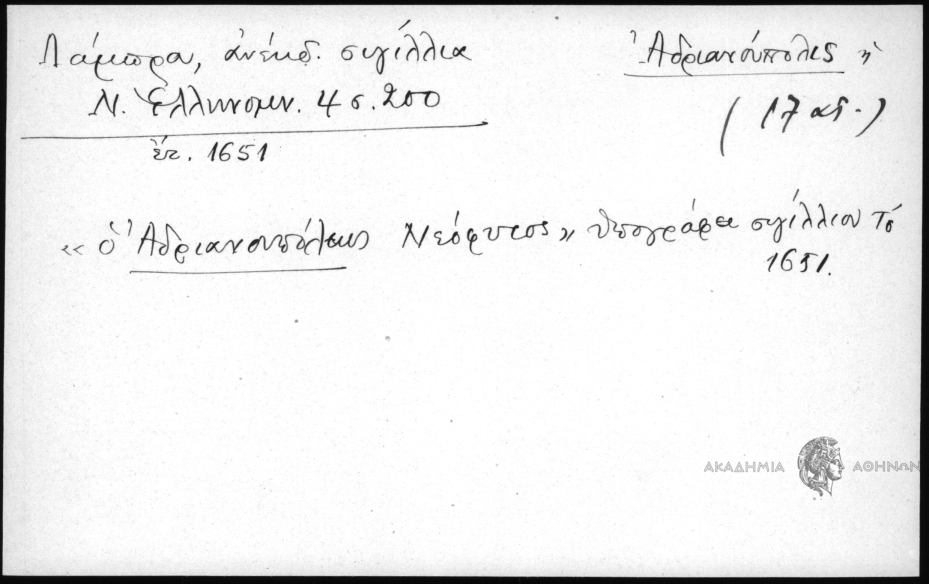 Λάμπρου, ἀνέκδ. σιγίλλια
Ν. Ἑλληνομν. 4 σ. 200
ἔτ. 1651
Ἀδριανούπολις ἡ
(17 αἰ.)
« ὁ Ἀδριανουπόλεως Νεόφυτος » ὑπογράφει σιγίλλιον τὸ
1651.
ΑΚΑΔΗΜΙΑ ΑΘΗΝΩΝ